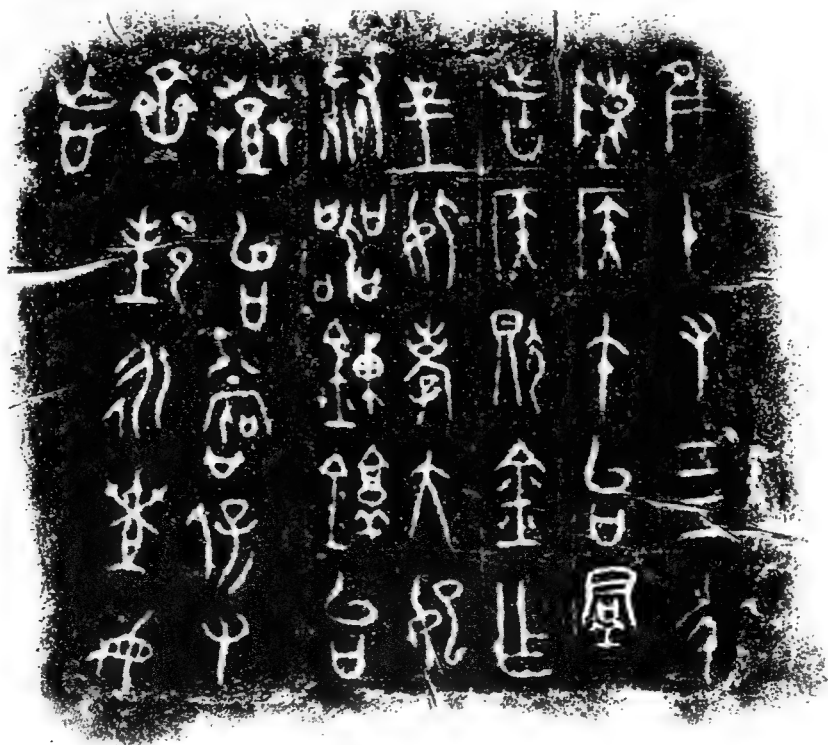 隹十又四年
陳侯午台群
者侯獻金乍
皇妣孝大妃
祭器鐱錞台
登台嘗保又
齊邦永世毋
忘